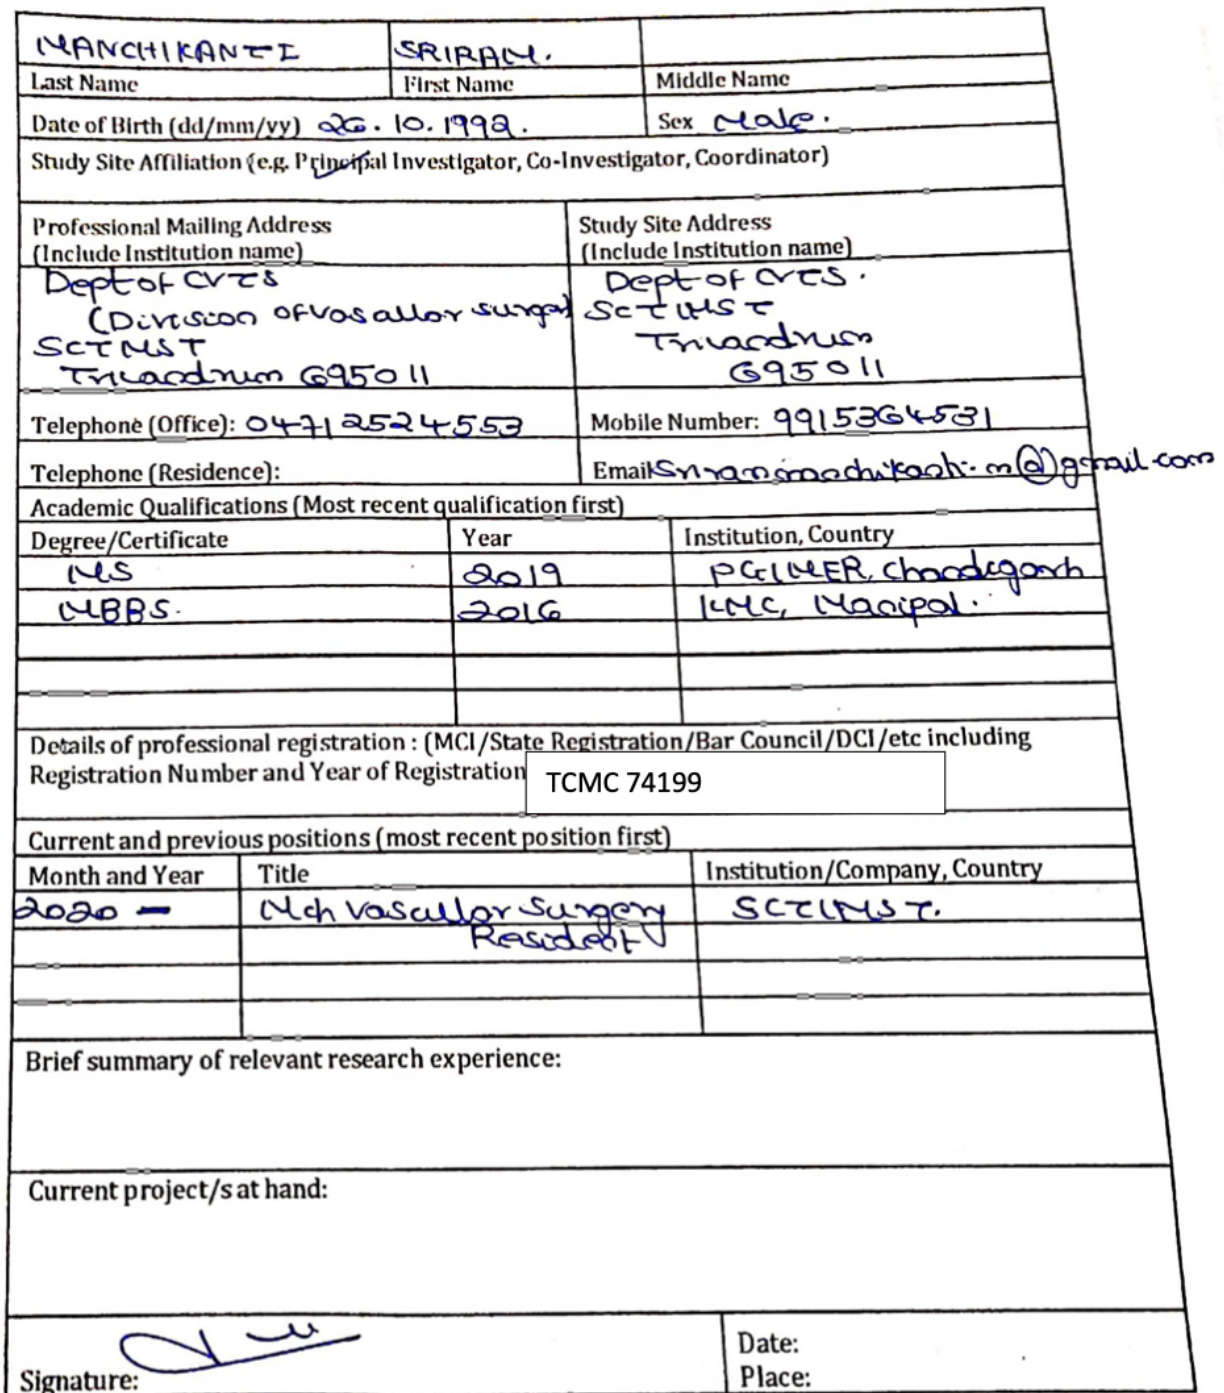 MANCHIKANTI SRIRAM.
Last Name First Name Middle Name
Date of Birth (dd/mm/yy) 26.10.1992. Sex Male.
Study Site Affiliation (e.g. Principal Investigator, Co-Investigator, Coordinator)
Professional Mailing Address
(Include Institution name)
Dept of CVTS
(Division of Vascular surgery
SCTIMST
Trivandrum 695011
Study Site Address
(Include Institution name)
Dept of CVTS.
SCTIMST
Trivandrum
695011
Telephone (Office): 04712524553 Mobile Number: 9915364531
Telephone (Residence): Email @gmail.com
Academic Qualifications (Most recent qualification first)
Degree/Certificate Year Institution, Country
MS 2019 PGIMER, Chandigarh
MBBS. 2016 KMC, Manipal.
Details of professional registration : (MCI/State Registration/Bar Council/DCI/etc including
Registration Number and Year of Registration TCMC 74199
Current and previous positions (most recent position first)
Month and Year Title Institution/Company, Country
2020 - Mch Vascular Surgery SCTIMST.
Resident
Brief summary of relevant research experience:
Current project/s at hand:
Signature: Date:
Place: